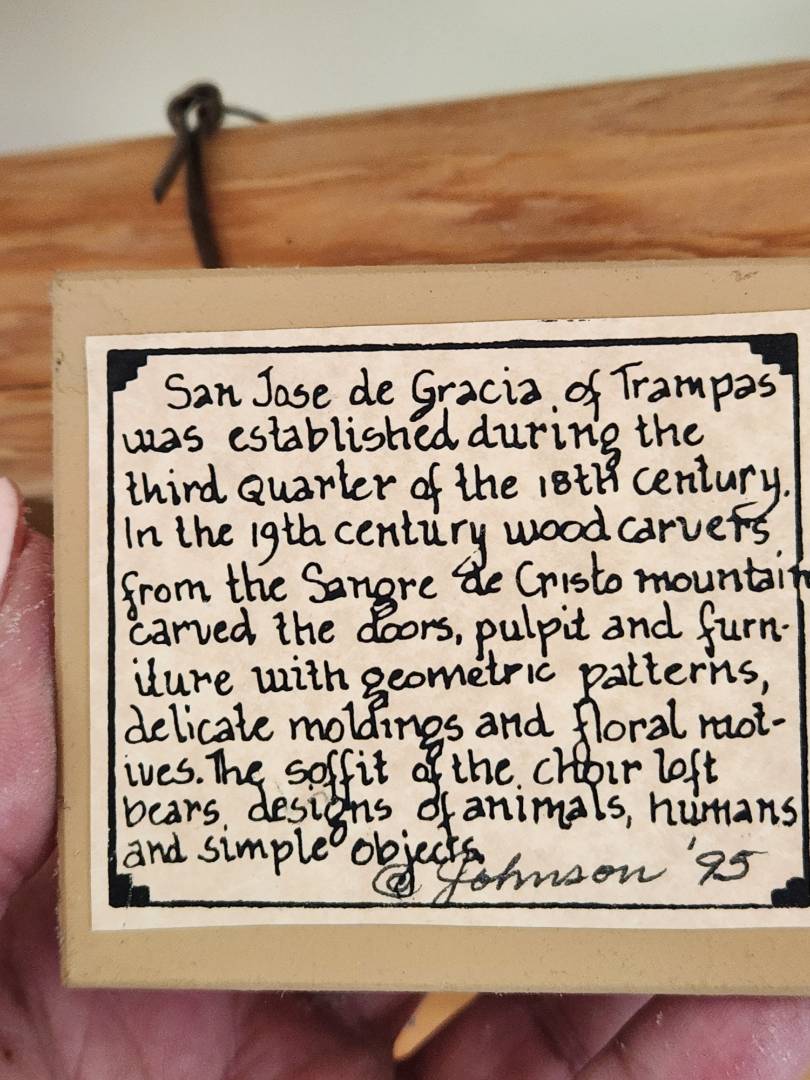 San Jose de Gracia of Trampas
was established during the
third Quarter of the 18th century.
In the 19th century wood carvers
from the Sangre de Cristo mountain
carved the doors, pulpit and furn-
iture with geometric patterns,
delicate moldings and floral mot-
ives. The soffit of the choir loft
bears designs of animals, humans
and simple objects.
© Johnson '95